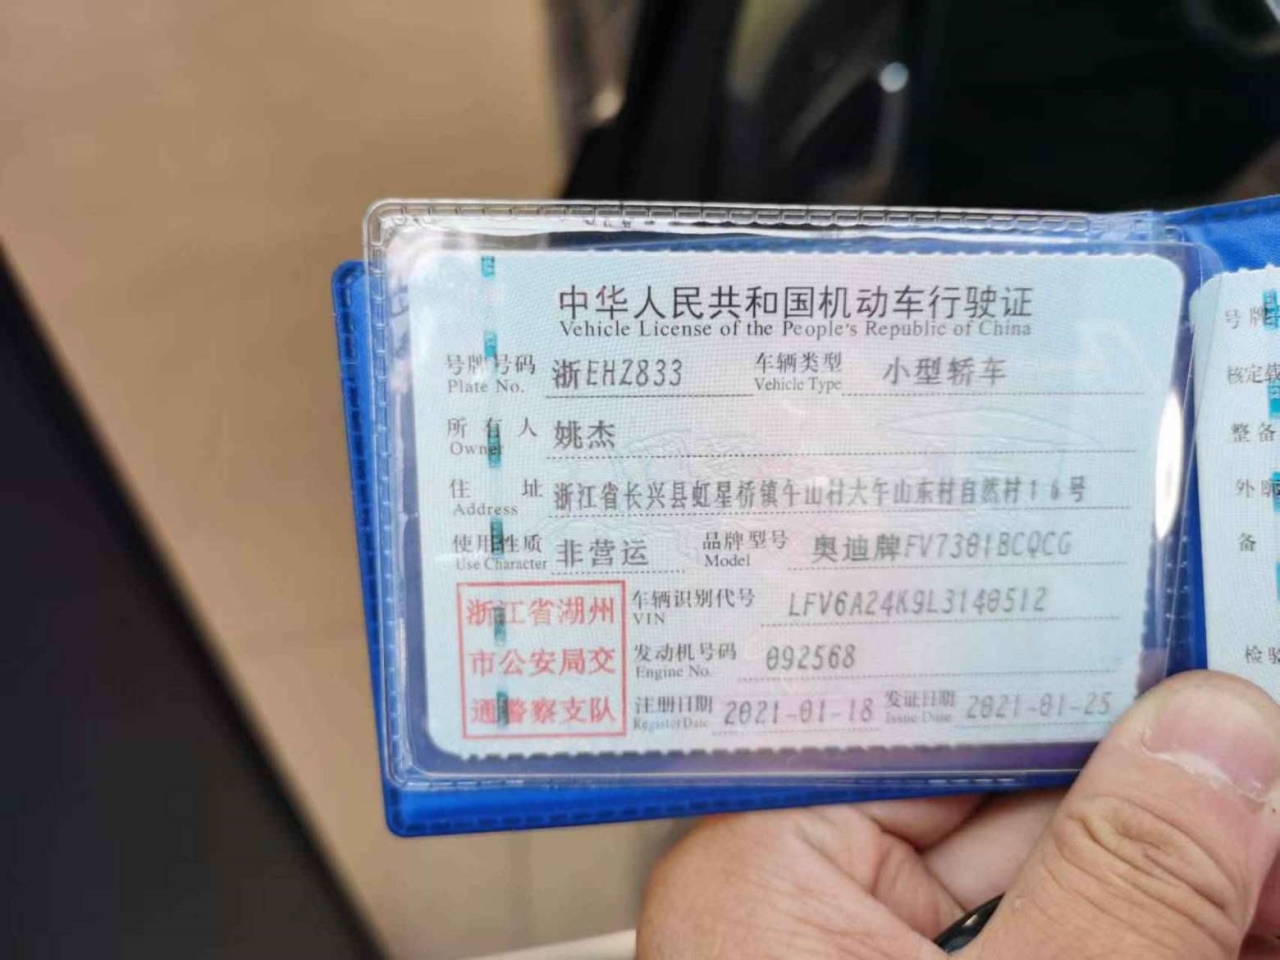 中华人民共和国机动车行驶证
Vehicle License of the People's Republic of China
号牌号码 Plate No. 浙EHZ833 车辆类型 Vehicle Type 小型轿车
所有人 Owner 姚杰
住址 Address 浙江省长兴县虹星桥镇午山村大午山东村自然村16号
使用性质 Use Character 非营运 品牌型号 Model 奥迪牌FV7301BCQCG
浙江省湖州
市公安局交
通警察支队
车辆识别代号 VIN LFV6A24K9L3140512
发动机号码 Engine No. 092568
注册日期 Register Date 2021-01-18 发证日期 Issue Date 2021-01-25
号牌
核定载
整备
外廓
备
检验